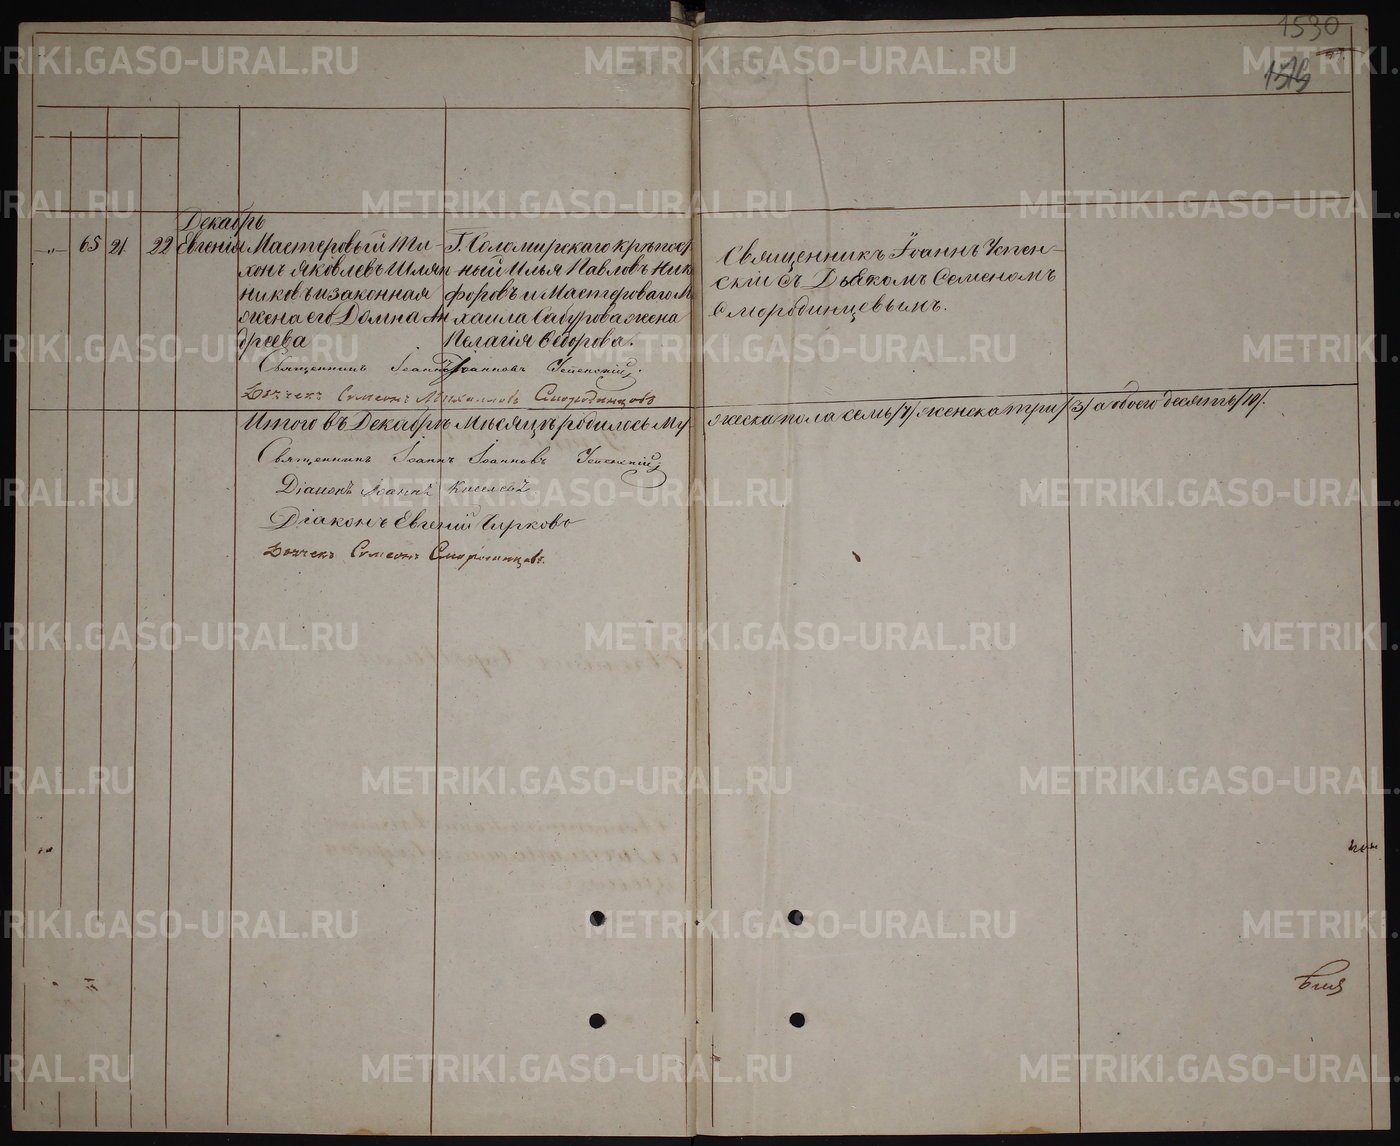 1530
1515
Декабрь
-"- 65 21 22 Евгенія
Мастеровый Ти-
хонъ Яковлевъ Шляп
никовъ и законная
жена его Домна Ан
дреева
Г. Соломирскаго крѣпост
ный Илья Павловъ Ник
форовъ и Мастероваго Ми
хаила Сабурова жена
Пелагія Ѳедорова.
Священникъ Іоаннъ Успен-
скій съ Дьячкомъ Семеномъ
Смородинцевымъ.
Священникъ Іоаннъ Іоанновъ Успенскій
Дьячекъ Симеонъ Михаиловъ Смородинцовъ
Итого въ Декабрѣ Мѣсяцѣ родилось му
жеска пола семь /7/ женска три /3/ а обоего десять /10/.
Священникъ Іоаннъ Іоанновъ Успенскій
Діаконъ Іоаннъ Киселевъ.
Діаконъ Евгеній Чирковъ
Дьячекъ Симеонъ Смородинцовъ.
METRIKI.GASO-URAL.RU